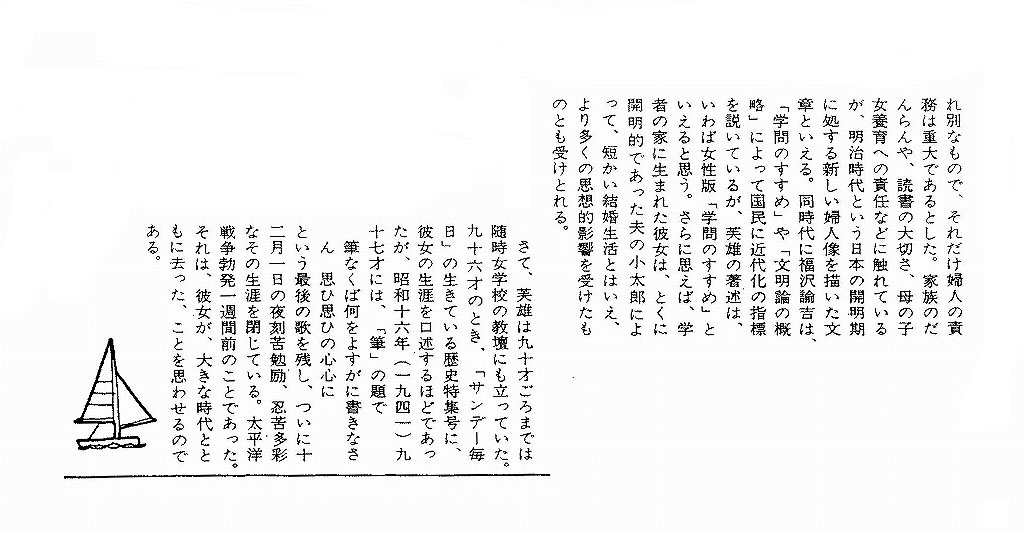 れ別なもので、それだけ婦人の責
務は重大であるとした。家族のだ
んらんや、読書の大切さ、母の子
女養育への責任などに触れている
が、明治時代という日本の開明期
に処する新しい婦人像を描いた文
章といえる。同時代に福沢諭吉は、
「学問のすすめ」や「文明論の概
略」によって国民に近代化の指標
を説いているが、芙雄の著述は、
いわば女性版「学問のすすめ」と
いえると思う。さらに思えば、学
者の家に生まれた彼女は、とくに
開明的であった夫の小太郎によ
って、短かい結婚生活とはいえ、
より多くの思想的影響を受けたも
のとも受けとれる。
さて、芙雄は九十才ごろまでは
随時女学校の教壇にも立っていた。
九十六才のとき、「サンデー毎
日」の生きている歴史特集号に、
彼女の生涯を口述するほどであっ
たが、昭和十六年（一九四一）九
十七才には、「筆」の題で
筆なくば何をよすがに書きなさ
ん　思ひ思ひの心心に
という最後の歌を残し、ついに十
二月一日の夜刻苦勉励、忍苦多彩
なその生涯を閉じている。太平洋
戦争勃発一週間前のことであった。
それは、彼女が、大きな時代とと
もに去った、ことを思わせるので
ある。